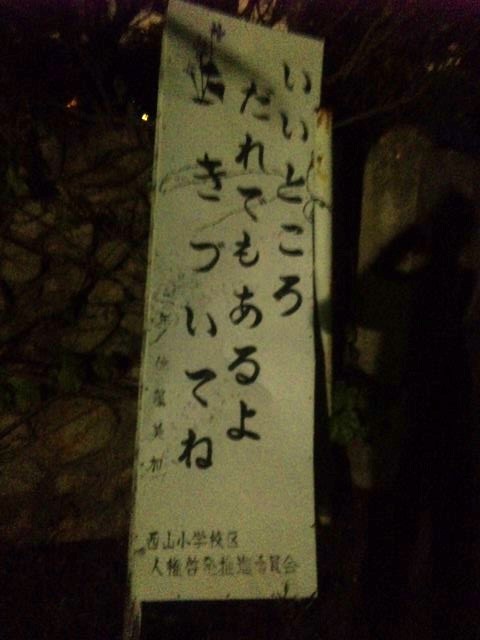 いいところ
だれでもあるよ
きづいてね
西山小学校区
人権啓発推進委員会